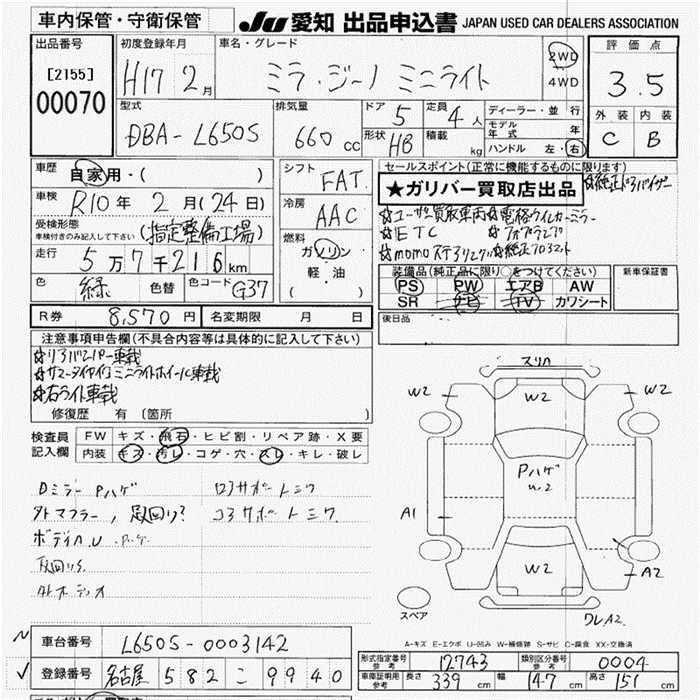 車内保管・守衛保管
JU 愛知 出品申込書 JAPAN USED CAR DEALERS ASSOCIATION
出品番号 初度登録年月 車名・グレード 評価点
[2155]
00070
H17 2月 ミラ・ジーノ ミニライト 2WD 4WD 3.5
型式 排気量 ドア 定員 ディーラー・並行 外装 内装
DBA-L650S 660cc 5 4人 モデル年式 年 C B
形状 HB 積載 kg ハンドル 左・右
車歴 自家用・( ) シフト FAT セールスポイント(正常に機能するものに限ります)
★ガリバー買取店出品
車検 R10年 2月(24日) 冷房 AAC
☆ユーザー買取車両 ☆電格ウィンカーミラー
受検形態 車検付きのみ記入して下さい (指定整備工場)
☆ETC
走行 5万7千216km 燃料 ガソリン 軽・油 ( )
色 緑 色替 色コード G37
装備品(純正品に限り○をつけてください) 新車保証書
PS PW エアB AW
SR ナビ TV カワシート
R券 8,570円 名変期限 月 日 後日品
注意事項申告欄(不具合内容等は具体的に記入して下さい)
☆リアバンパー車載
☆右ライト車載
修復歴 有 (箇所 )
検査員記入欄 FW キズ・飛石・ヒビ割・リペア跡・X要
内装 キズ・汚レ・コゲ・穴・スレ・キレ・破レ
Dミラー Pハゲ
外マフラー,
外オーディオ
スリハ
W2 W2 W2
Pハゲ
W2
A1
W2 A2
スペア
A-キズ E-エクボ U-凹み W-補修跡 S-サビ C-腐食 XX-交換済
車台番号 L650S-0003142
形式指定番号 参考 12743 類別区分番号 参考 0004
登録番号 名古屋 582 こ 9940
車庫証明用 参考 長さ 339cm 幅 147cm 高さ 151cm